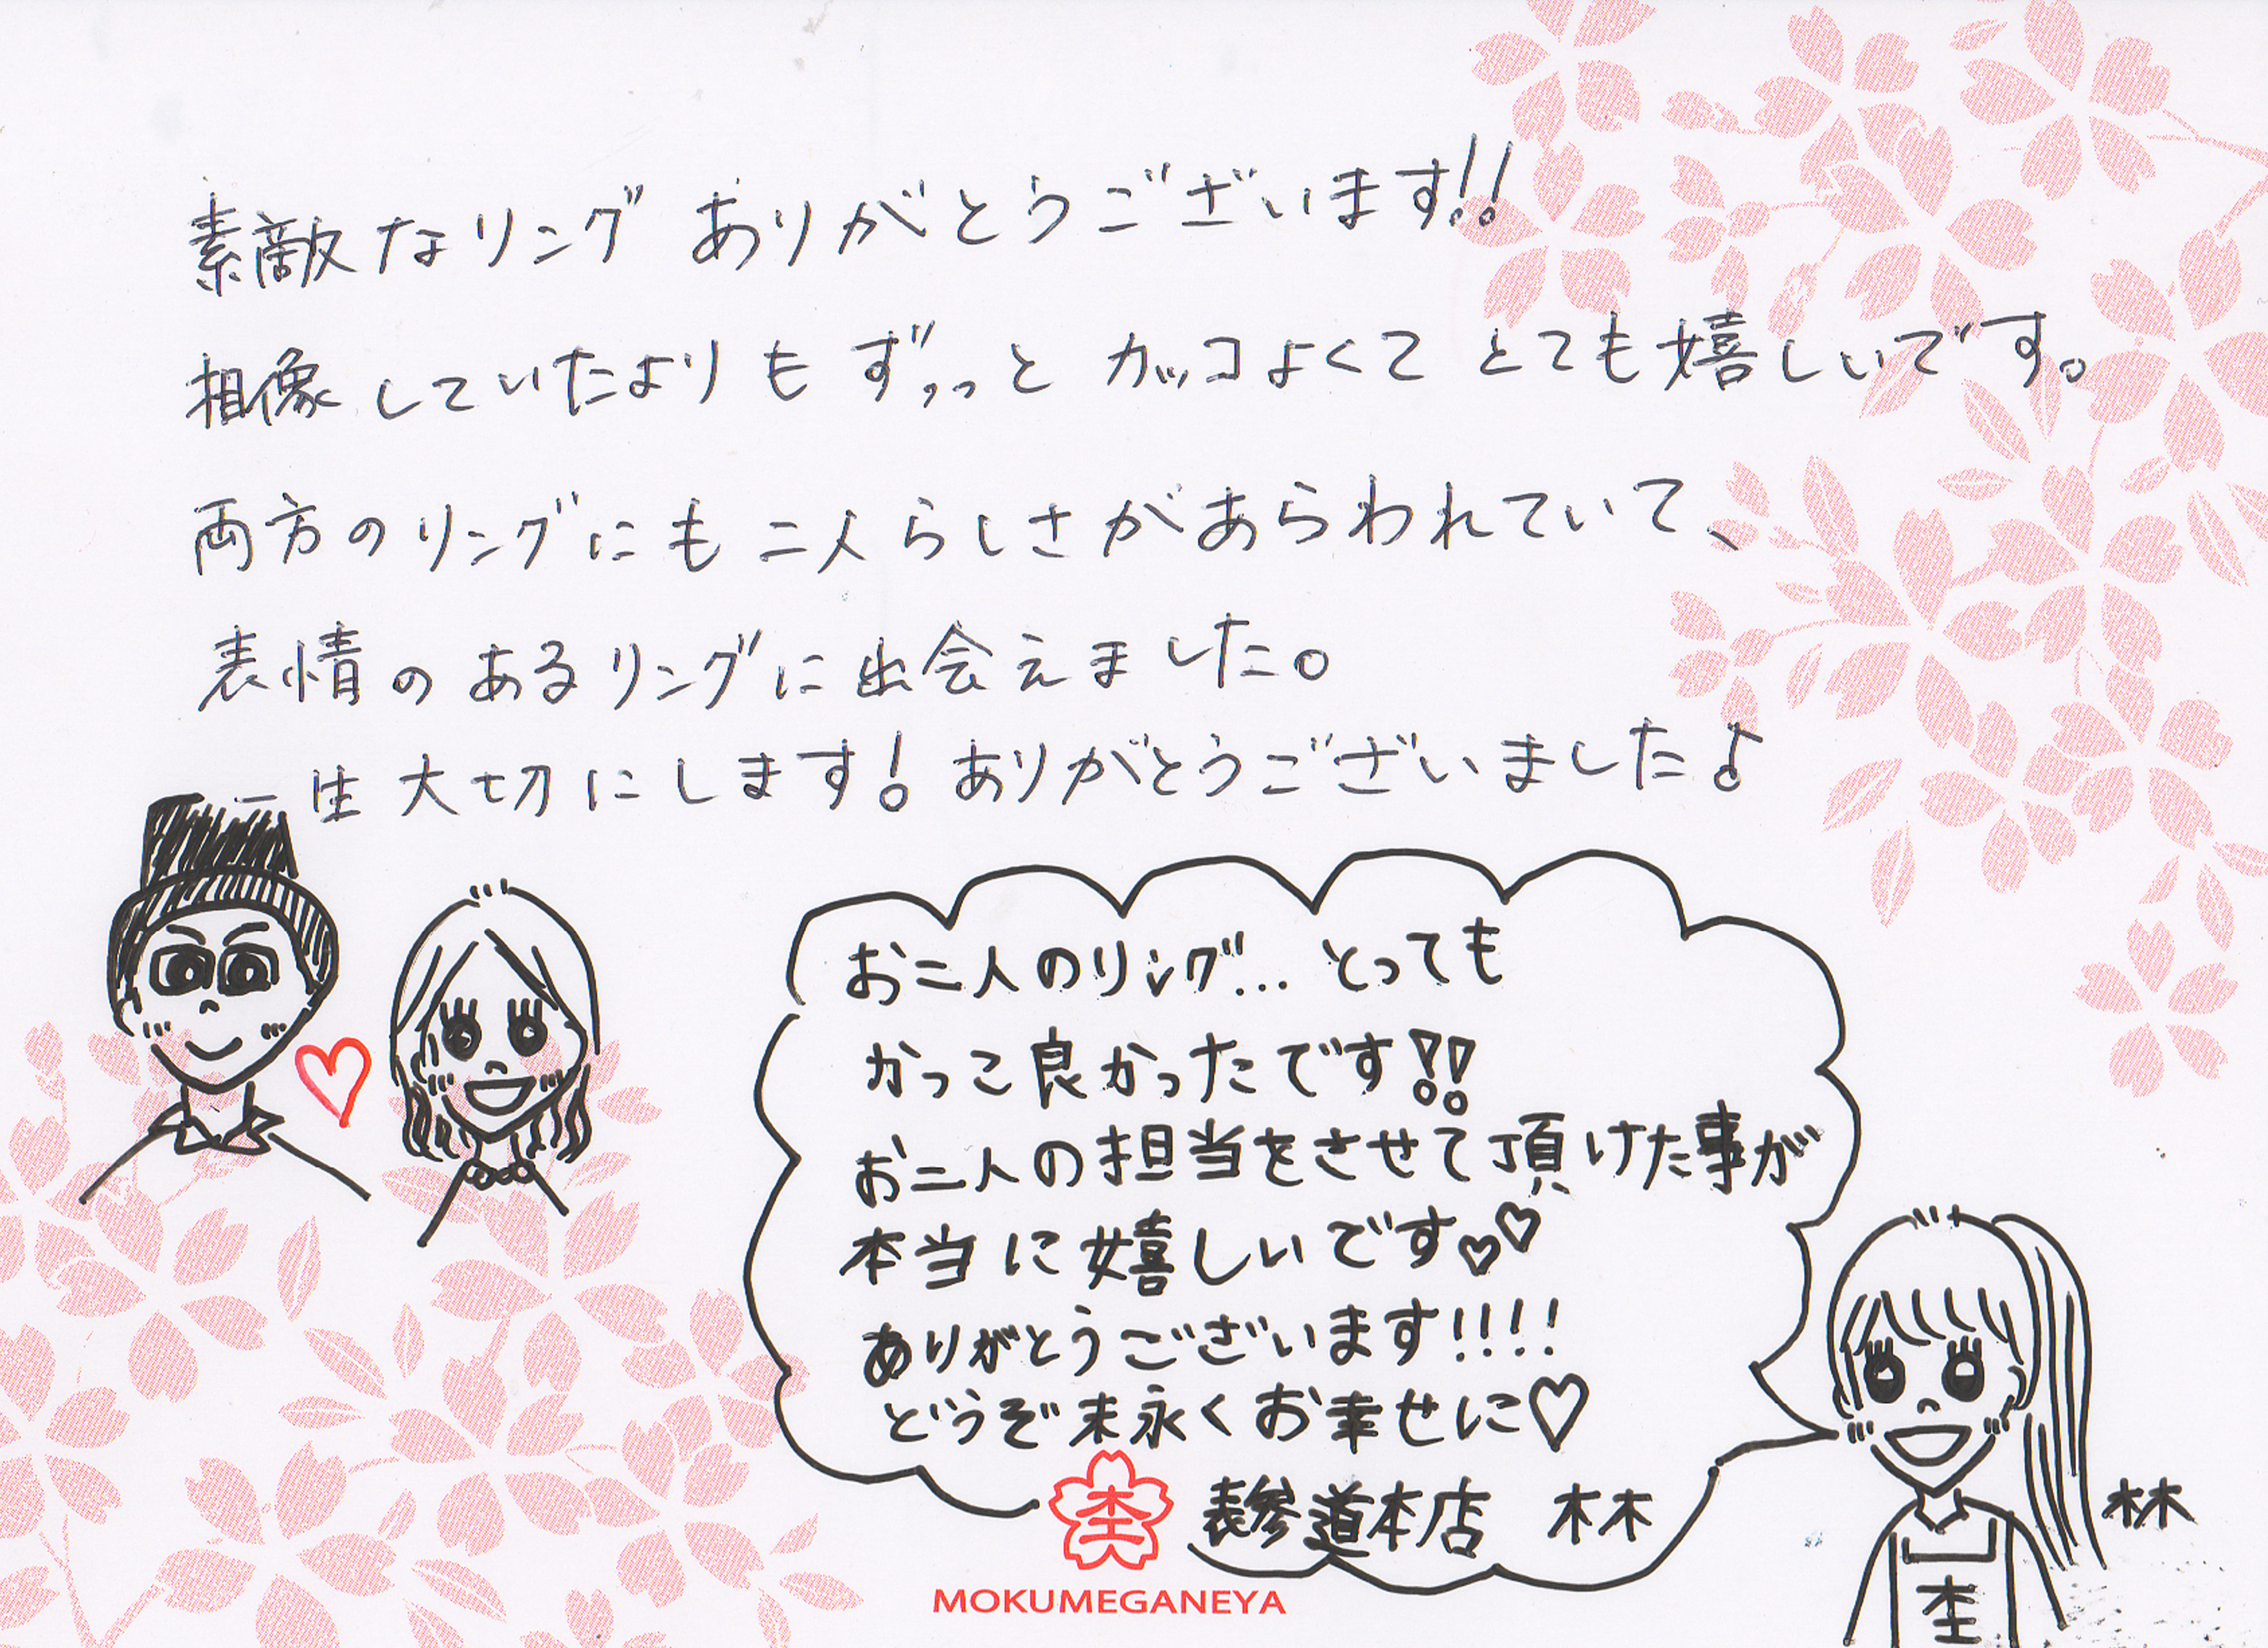 素敵なリング ありがとうございます!!
想像していたよりも ずっっと カッコよくて とても嬉しいです。
両方のリングにも 二人らしさがあらわれていて、
表情の あるリングに出会えました。
一生大切にします! ありがとうございました♪
お二人のリング… とっても
かっこ良かったです!!
お二人の担当をさせて頂けた事が
本当に嬉しいです♡♡
ありがとうございます!!!!
どうぞ末永くお幸せに♡
杢 表参道本店 林
MOKUMEGANEYA
林
杢